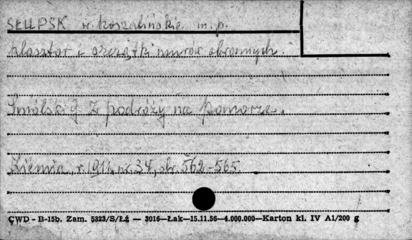 SŁUPSK w. koszalińskie m. p.
klasztor i cząstki murów obronnych.
Smólski G. Z podróży na Pomorze.
Ziemia, r. 1911, nr. 34, str. 562-565
ÇWD - B-15b. Zam. 5323/S/Łż — 3016—Łak—15.11.56—4.000.000—Karton kl. IV A1/200 g